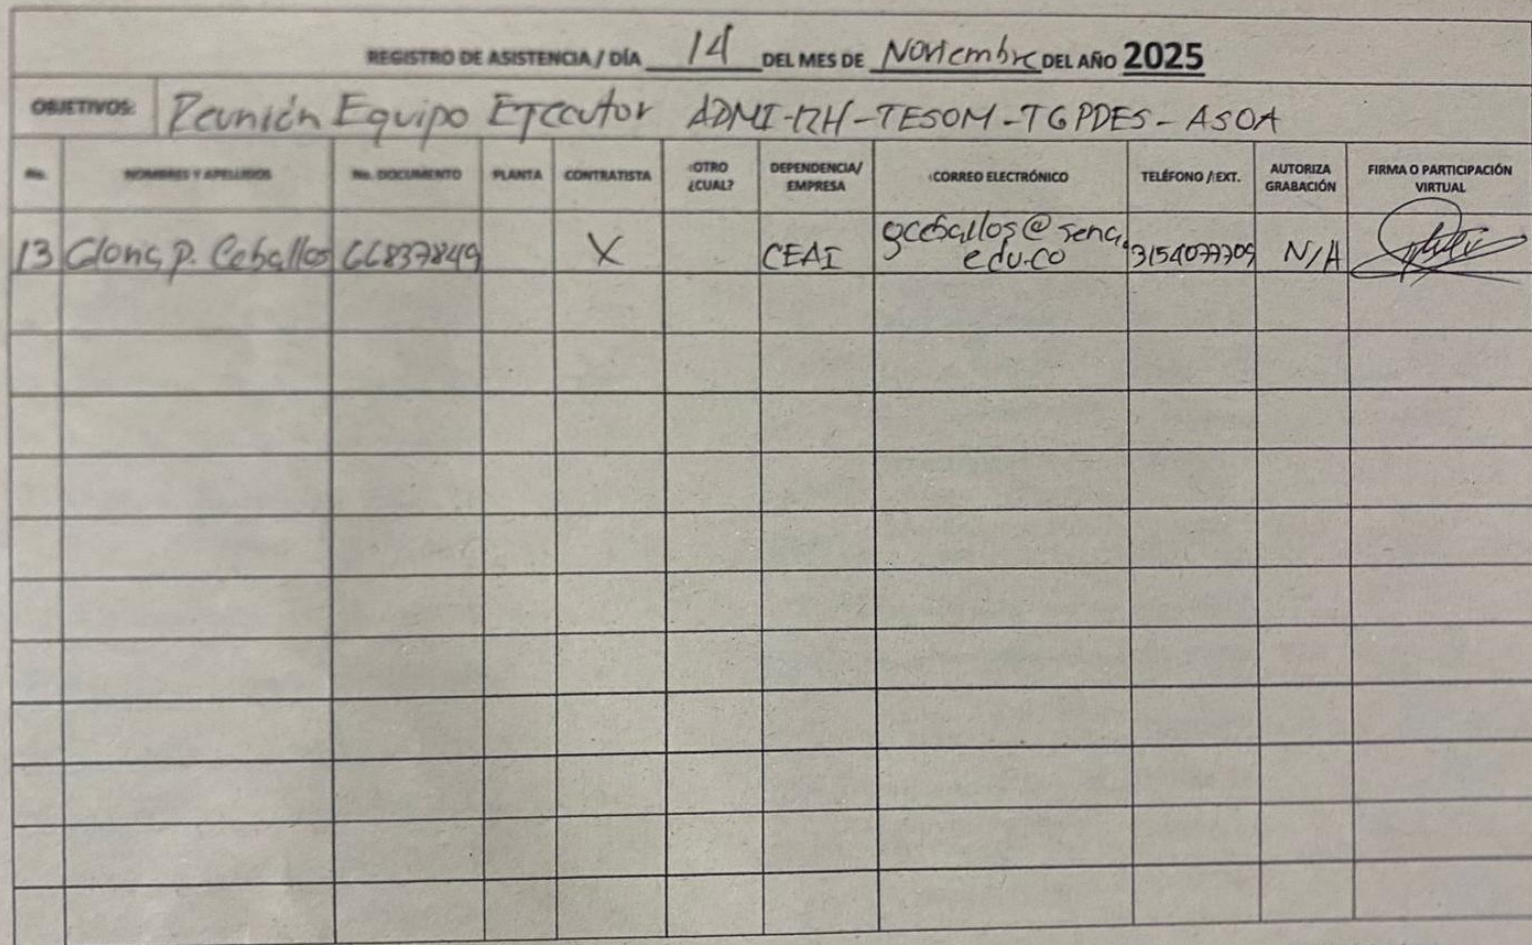 REGISTRO DE ASISTENCIA / DÍA 14 DEL MES DE Noviembre DEL AÑO 2025
OBJETIVOS: Reunión Equipo Ejecutor ADMI-RH-TESOM-TGPDES-ASOA
No. NOMBRES Y APELLIDOS No. DOCUMENTO PLANTA CONTRATISTA OTRO ¿CUAL? DEPENDENCIA/ EMPRESA CORREO ELECTRÓNICO TELÉFONO / EXT. AUTORIZA GRABACIÓN FIRMA O PARTICIPACIÓN VIRTUAL
13 Gloria P. Ceballos 66837849 X CEAI gceballos@sena.edu.co 3154077709 N/A